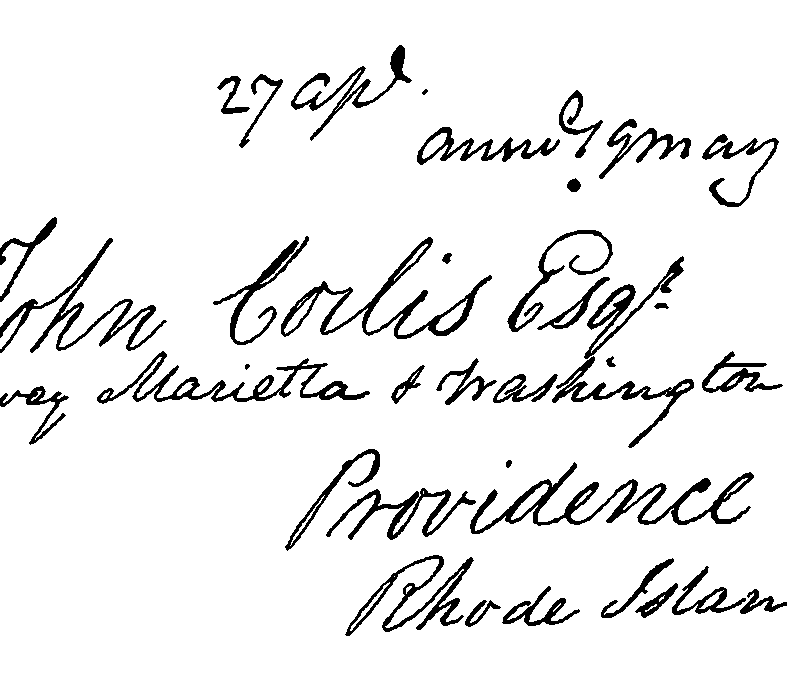 27 apl.
answd 9 may
John Corlis Esqr.
way Marietta & Washington
Providence
Rhode Islan